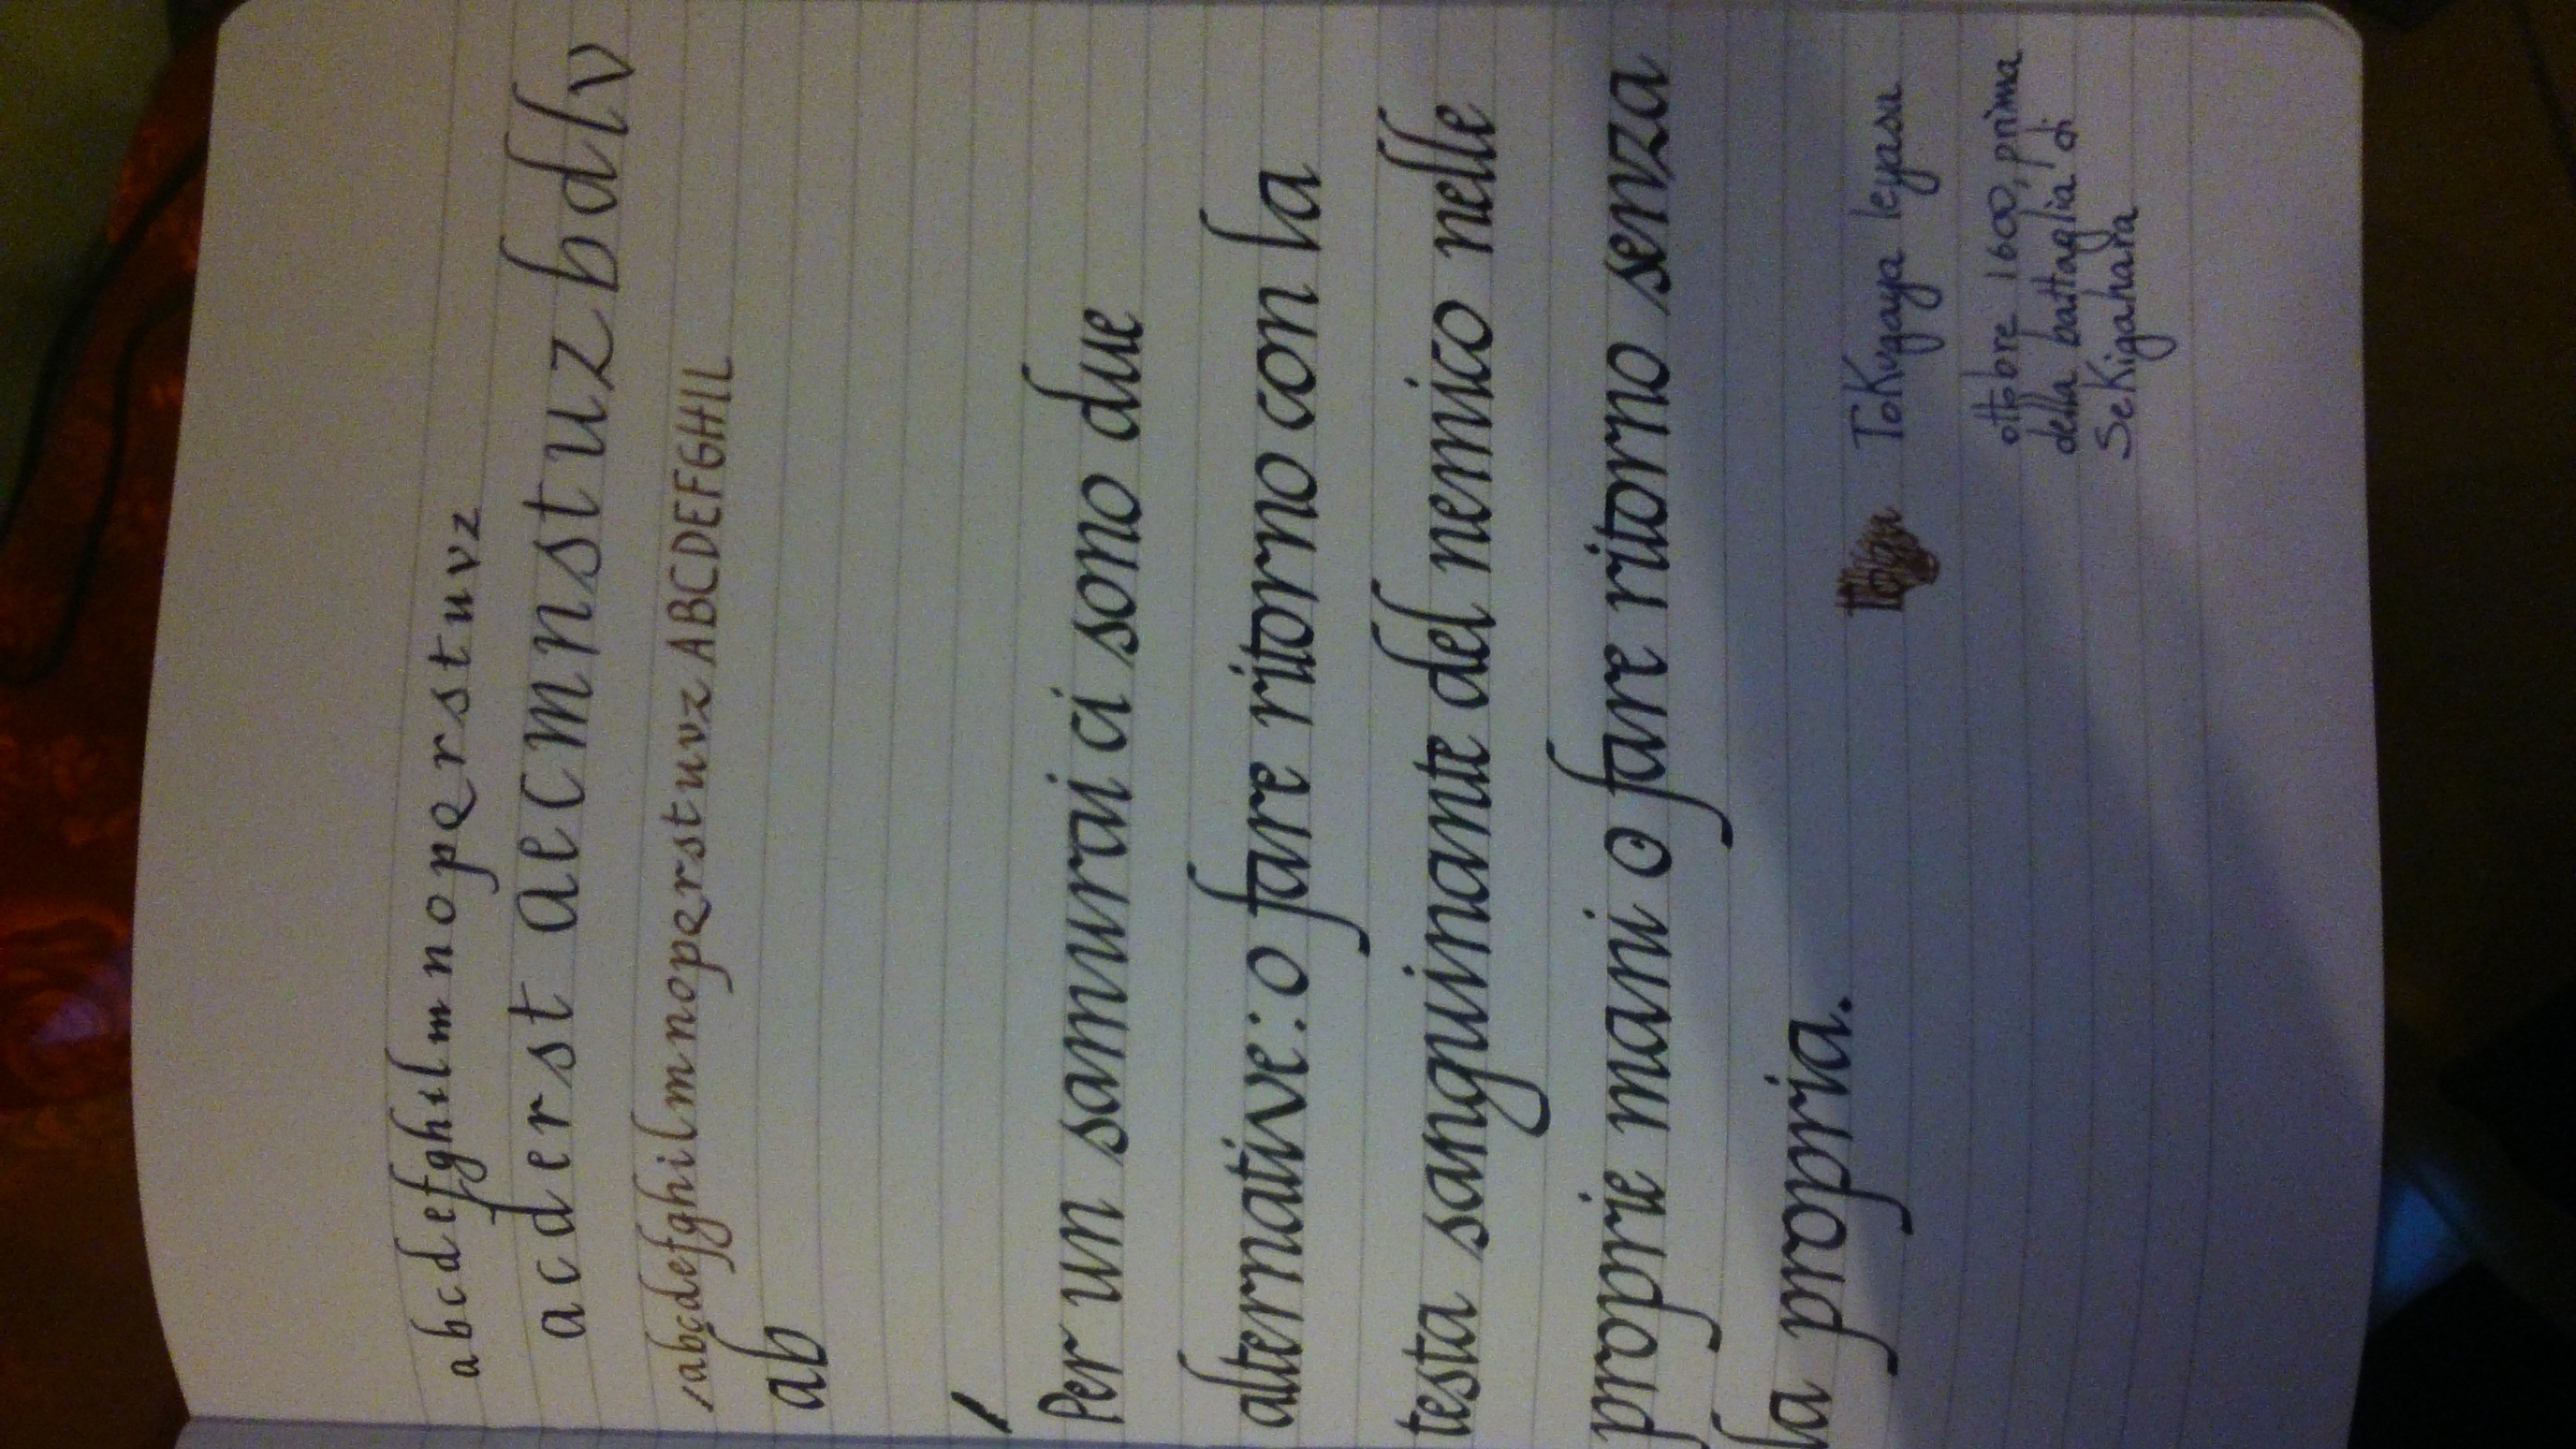 a b c d e f g h i l m n o p q r s t u v z
a c d e r s t a e c m n s t u z b d l v
abcdefghilmnopqrstuvz ABCDEFGHIL
ab
Per un samurai ci sono due
alternative: o fare ritorno con la
testa sanguinante del nemico nelle
proprie mani o fare ritorno senza
la propria.
Tokugaya Ieyasu
ottobre 1600, prima
della battaglia di
Sekigahara